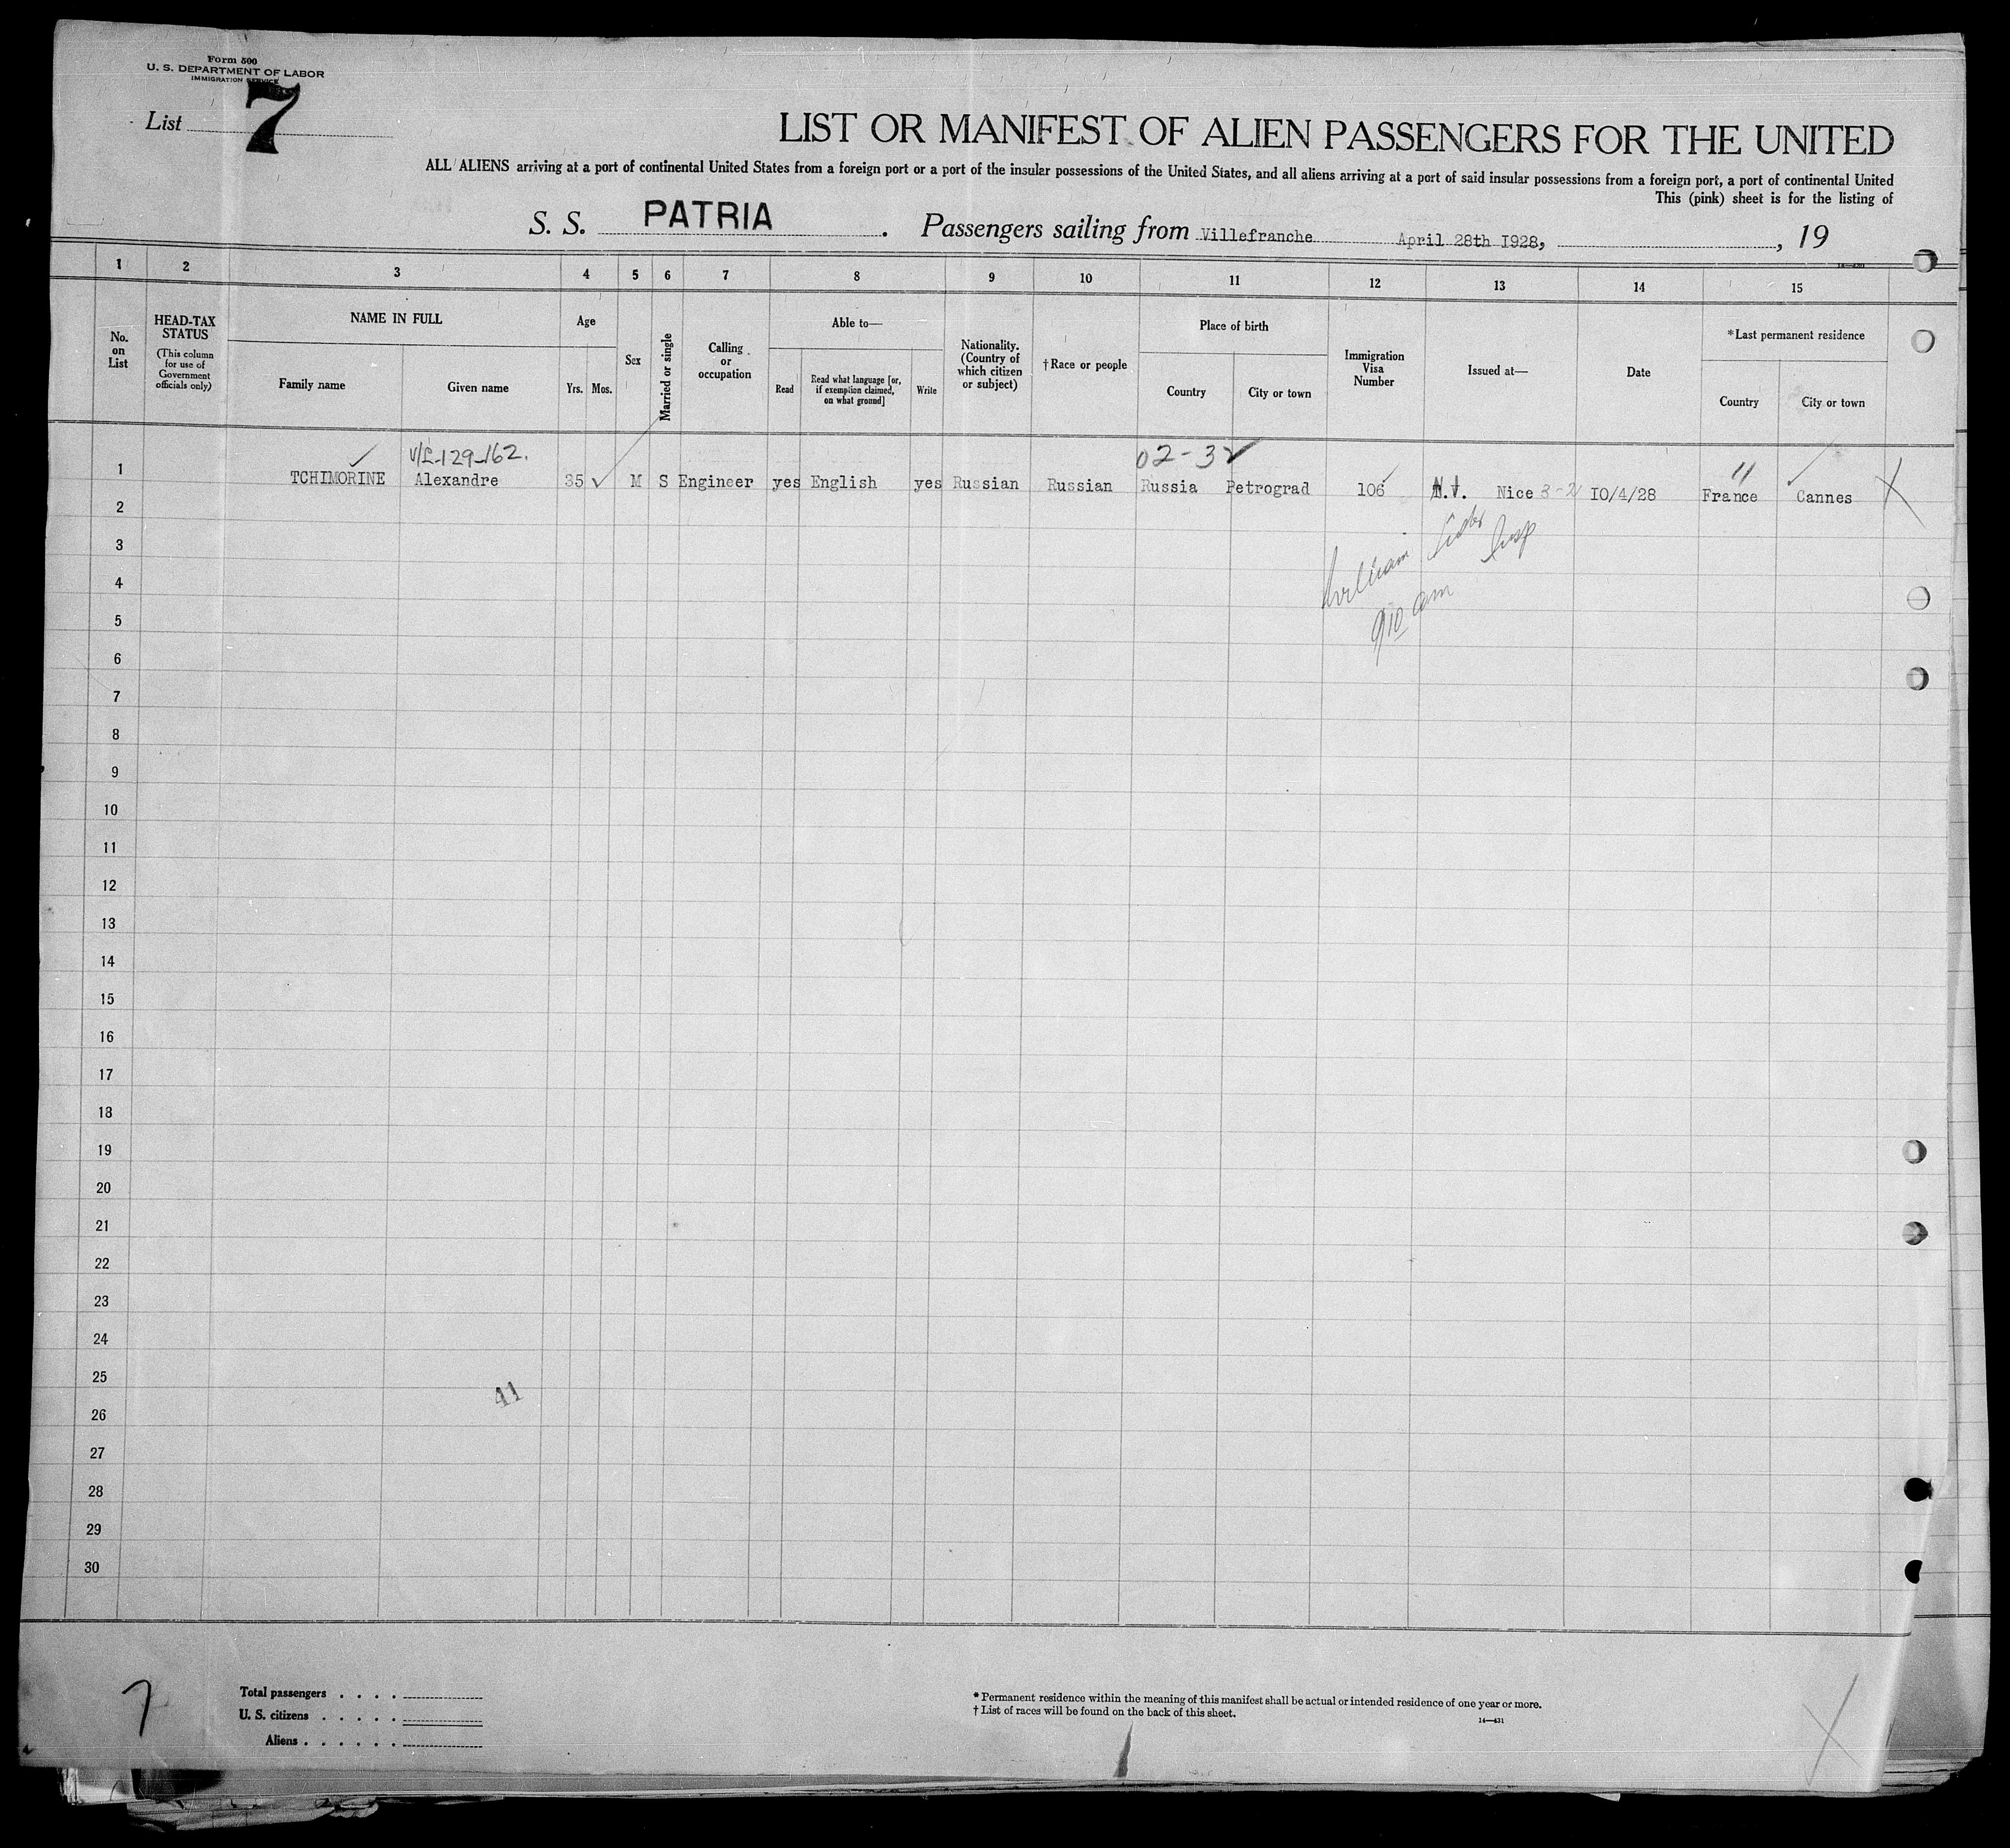 Form 500
U. S. DEPARTMENT OF LABOR
IMMIGRATION SERVICE
List 7
LIST OR MANIFEST OF ALIEN PASSENGERS FOR THE UNITED
ALL ALIENS arriving at a port of continental United States from a foreign port or a port of the insular possessions of the United States, and all aliens arriving at a port of said insular possessions from a foreign port, a port of continental United
This (pink) sheet is for the listing of
S. S. PATRIA. Passengers sailing from Villefranche April 28th I928, , 19
1 2 3 4 5 6 7 8 9 10 11 12 13 14 15
No. on List
HEAD-TAX STATUS
(This column for use of Government officials only)
NAME IN FULL
Family name
Given name
Age
Yrs. Mos.
Sex
Married or single
Calling or occupation
Able to—
Read
Read what language [or, if exemption claimed, on what ground]
Write
Nationality. (Country of which citizen or subject)
†Race or people
Place of birth
Country
City or town
Immigration Visa Number
Issued at—
Date
*Last permanent residence
Country
City or town
V/L-129-162. 02-3
1 TCHIMORINE Alexandre 35 M S Engineer yes English yes Russian Russian Russia Petrograd 106 Nice 3-2 I0/4/28 France Cannes X
2
William Insp
3
4
9 10 am
5
6
7
8
9
10
11
12
13
14
15
16
17
18
19
20
21
22
23
24
25
41
26
27
28
29
30
7
Total passengers . . . .
U. S. citizens . . . . .
Aliens . . . . . .
* Permanent residence within the meaning of this manifest shall be actual or intended residence of one year or more.
† List of races will be found on the back of this sheet.
14—431
X